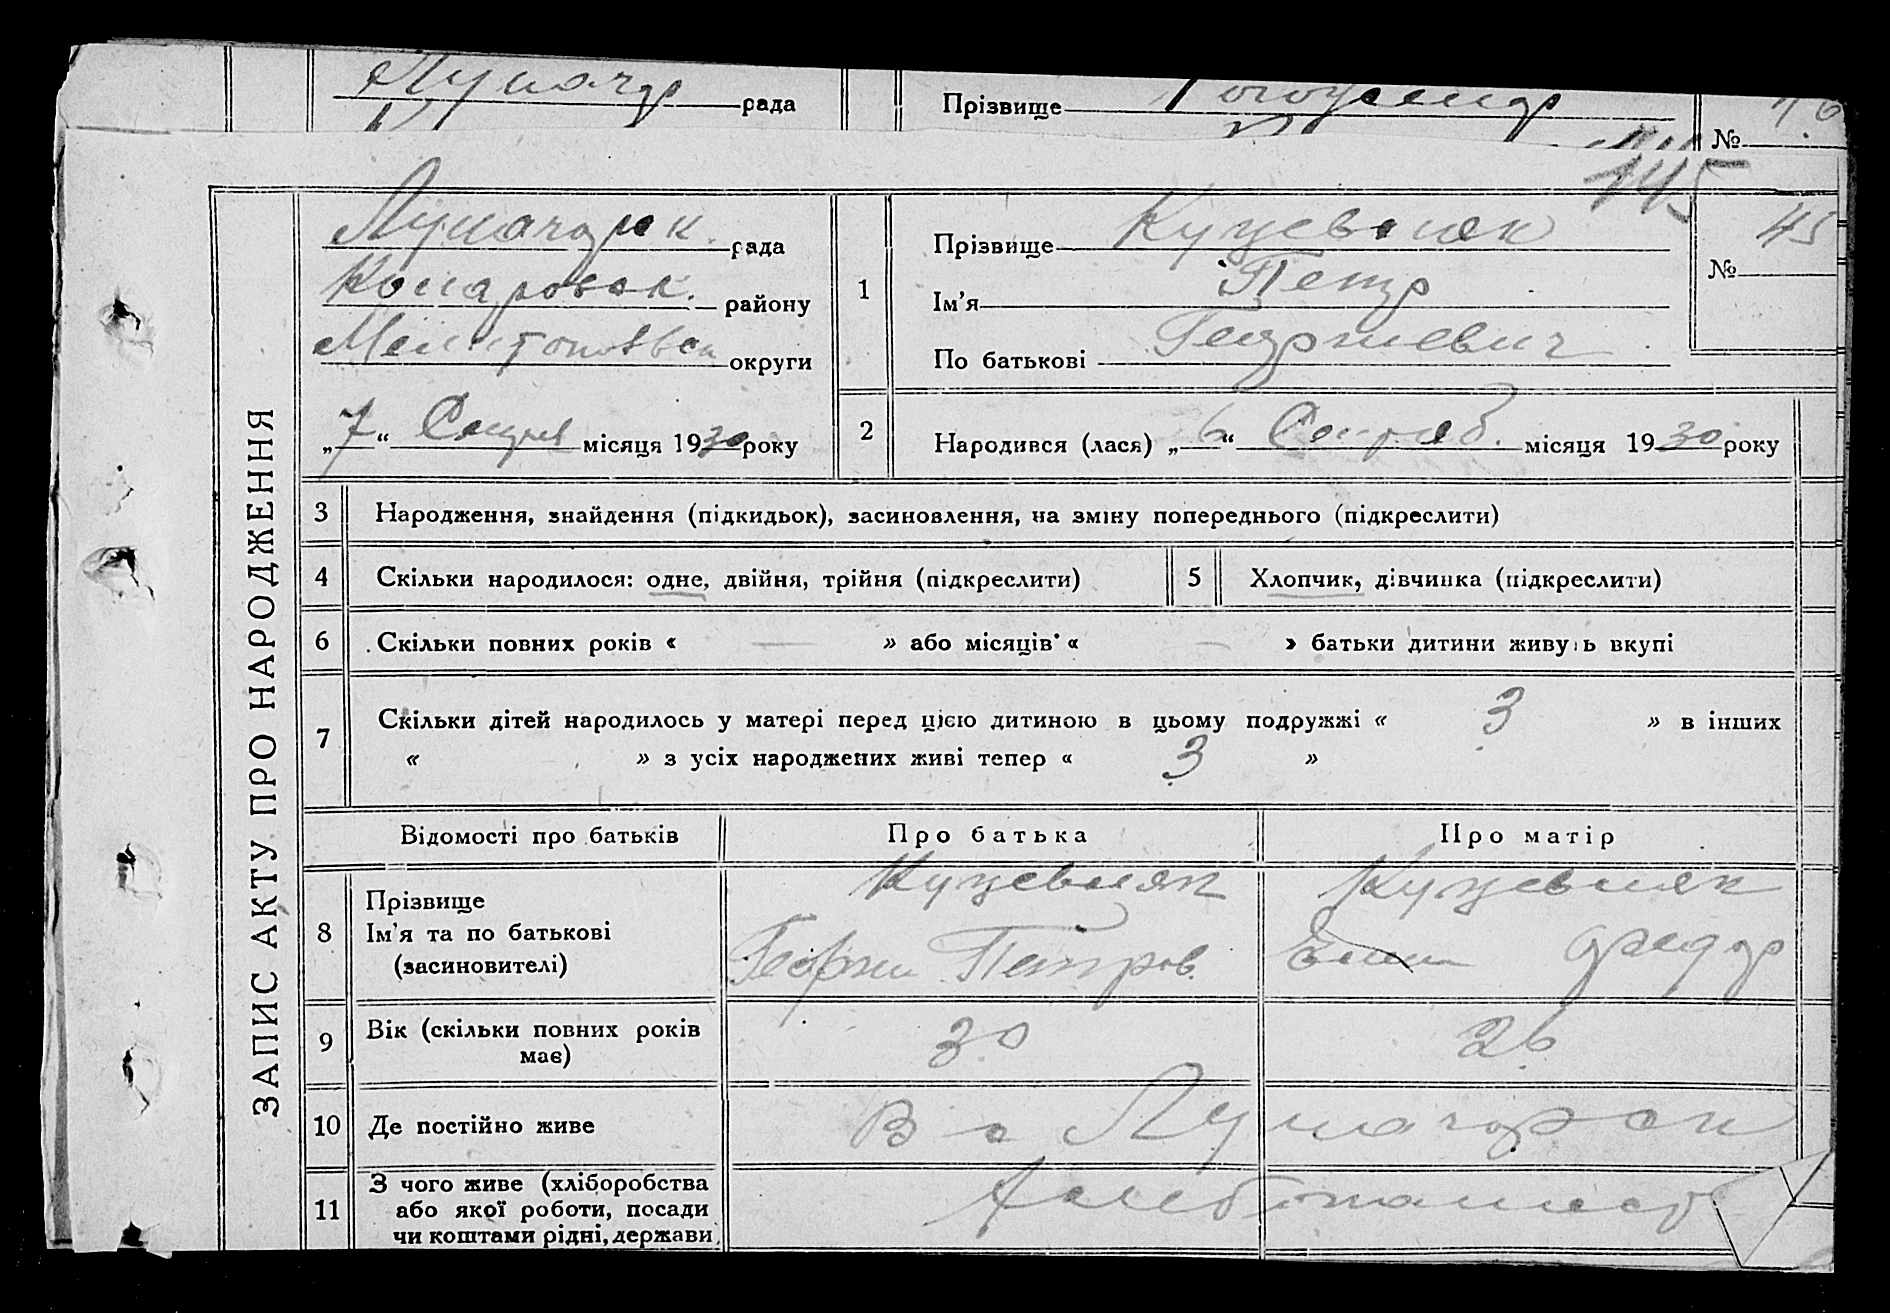 рада
Прізвище
№
145
ЗАПИС АКТУ ПРО НАРОДЖЕННЯ
рада
района Комаровск. району
Мелитопольск округи
„7“ Сентяб місяця 1930 року
1
Прізвище Куцевляк
Ім’я Петр
По батькові Георгиевич
№ 45
2
Народився (лася) „6“ Сентяб. місяця 1930 року
3 Народження, знайдення (підкидьок), засиновлення, на зміну попереднього (підкреслити)
4 Скільки народилося: одне, двійня, трійня (підкреслити)
5 Хлопчик, дівчинка (підкреслити)
6 Скільки повних років « — » або місяців « — » батьки дитини живуть вкупі
7 Скільки дітей народилось у матері перед цією дитиною в цьому подружжі « 3 » в інших
« » з усіх народжених живі тепер « 3 »
Відомості про батьків
Про батька
Про матір
8
Прізвище
Ім’я та по батькові
(засиновителі)
Куцевляк
Георги Петров.
Куцевляк
Федор
9
Вік (скільки повних років
має)
30
26
10 Де постійно живе
В с
11
З чого живе (хліборобства
або якої роботи, посади
чи коштами рідні, держави